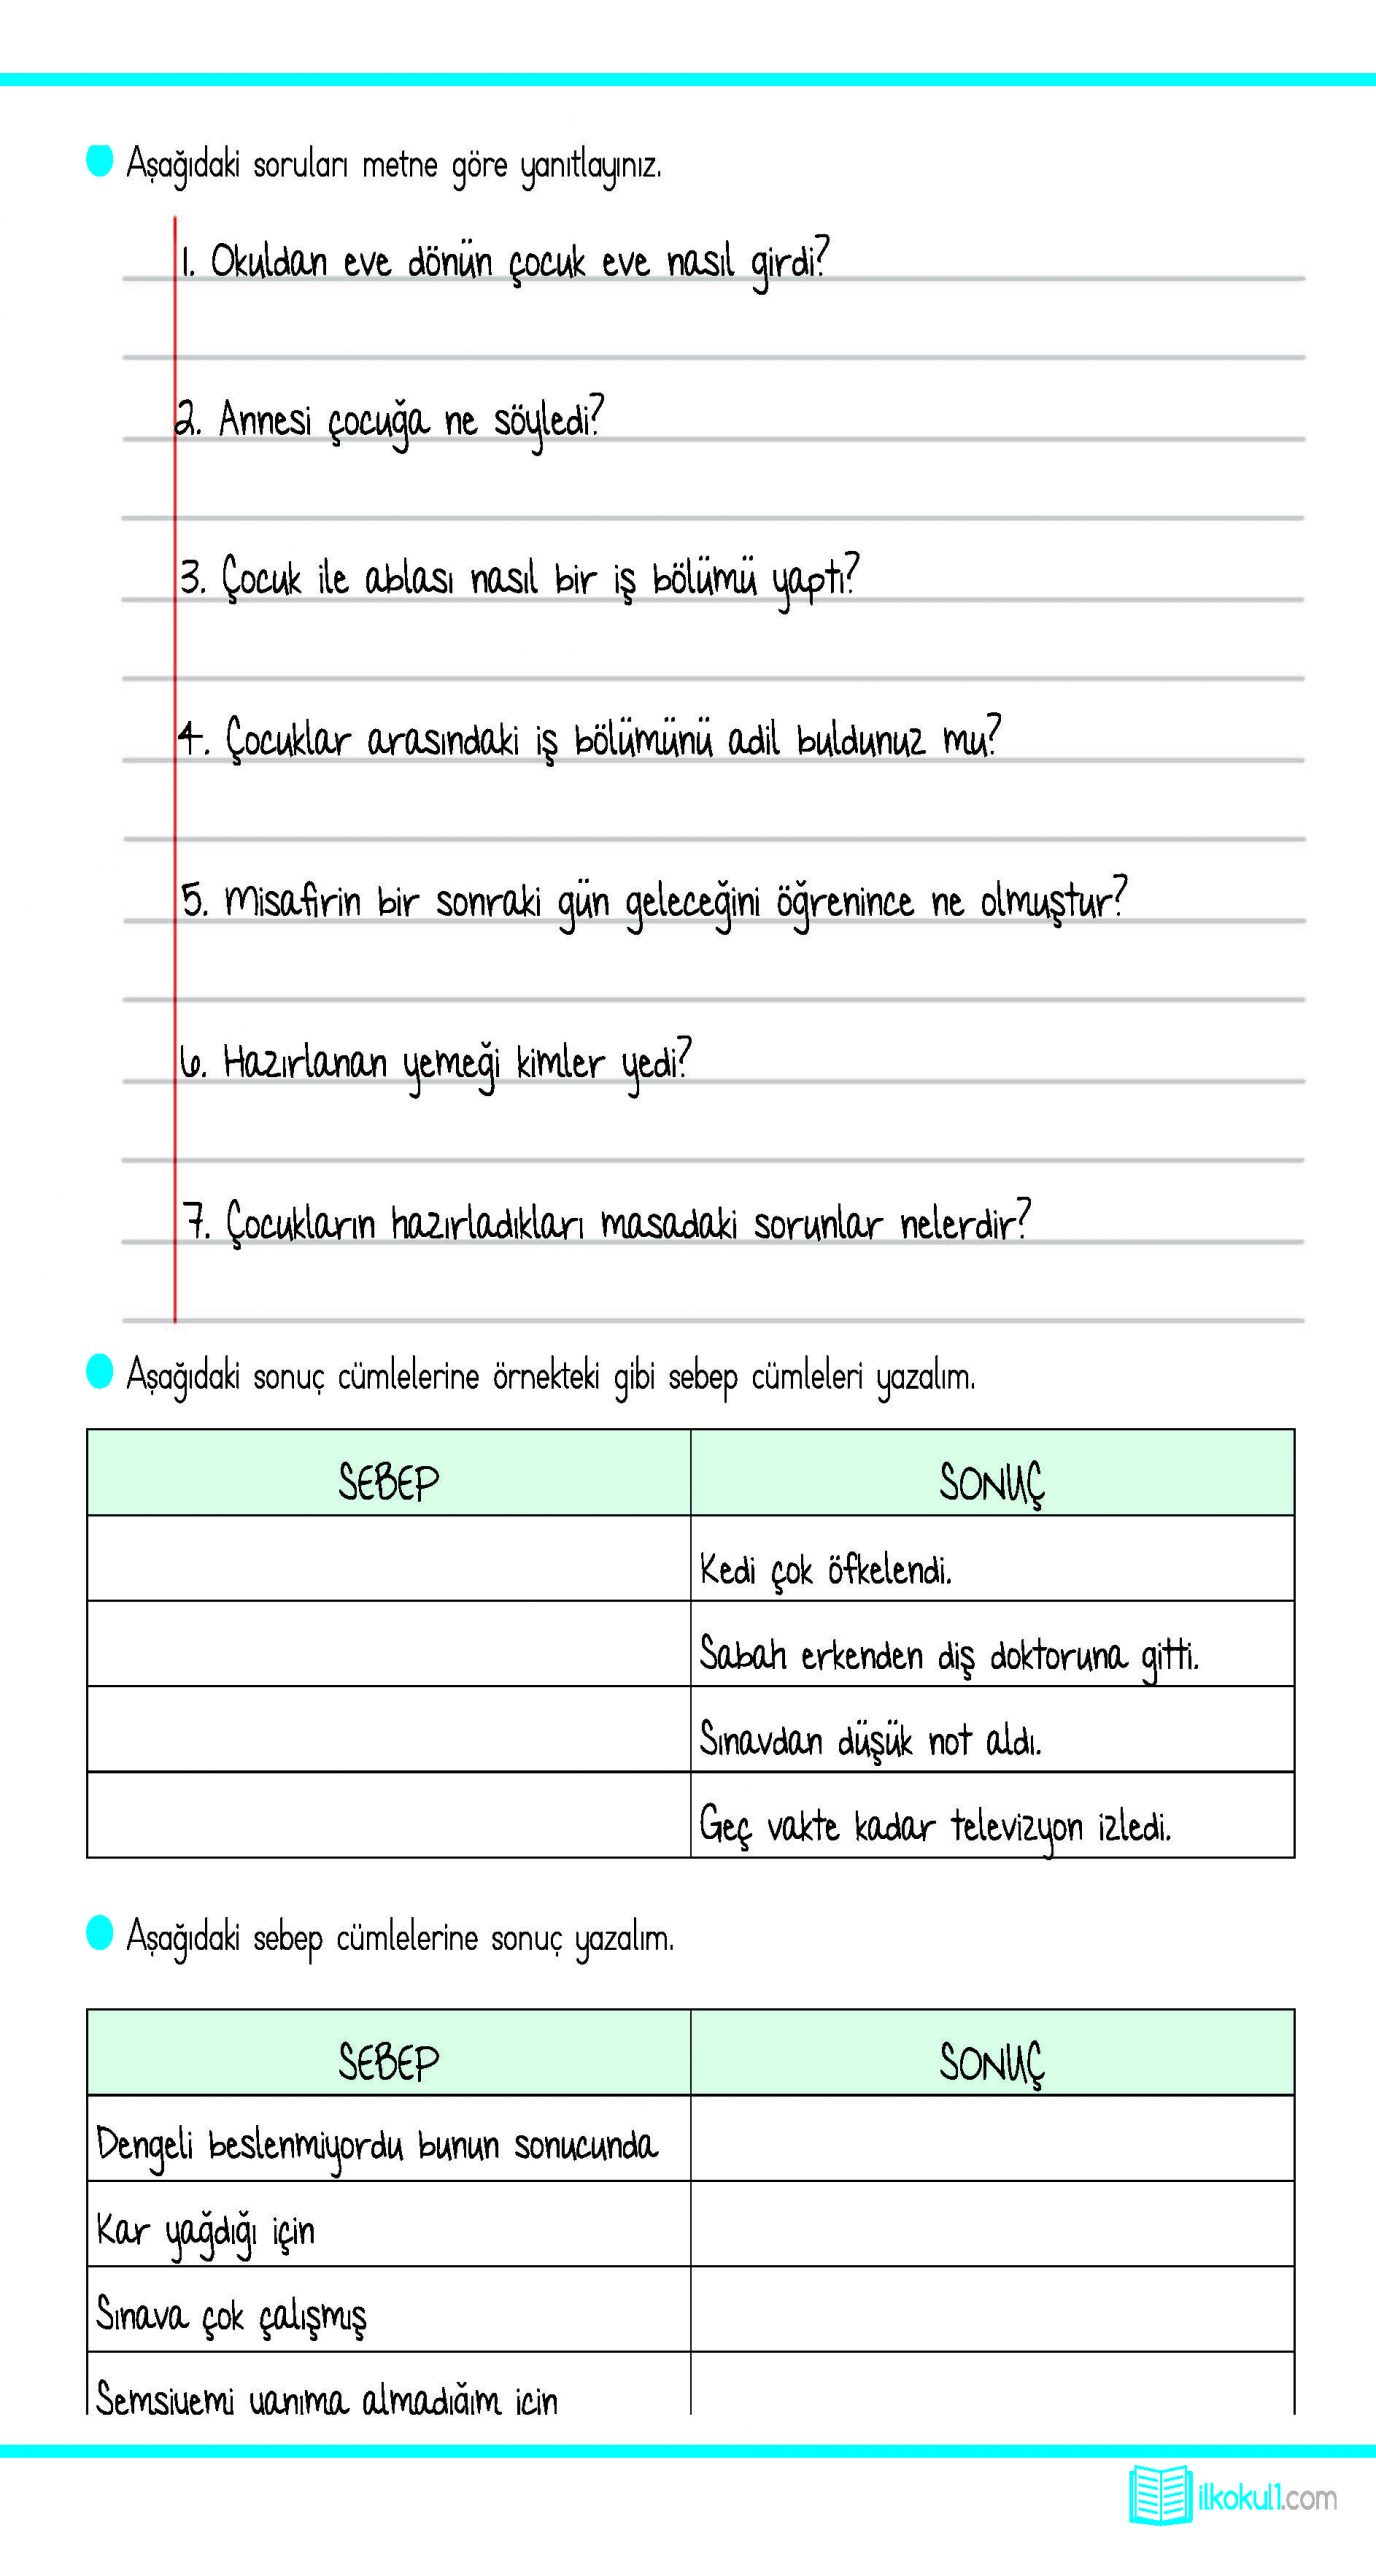 Aşağıdaki soruları metne göre yanıtlayınız.
1. Okuldan eve dönün çocuk eve nasıl girdi?
2. Annesi çocuğa ne söyledi?
3. Çocuk ile ablası nasıl bir iş bölümü yaptı?
4. Çocuklar arasındaki iş bölümünü adil buldunuz mu?
5. Misafirin bir sonraki gün geleceğini öğrenince ne olmuştur?
6. Hazırlanan yemeği kimler yedi?
7. Çocukların hazırladıkları masadaki sorunlar nelerdir?
Aşağıdaki sonuç cümlelerine örnekteki gibi sebep cümleleri yazalım.
SEBEP SONUÇ
Kedi çok öfkelendi.
Sabah erkenden diş doktoruna gitti.
Sınavdan düşük not aldı.
Geç vakte kadar televizyon izledi.
Aşağıdaki sebep cümlelerine sonuç yazalım.
SEBEP SONUÇ
Dengeli beslenmiyordu bunun sonucunda
Kar yağdığı için
Sınava çok çalışmış
Şemsiyemi yanıma almadığım için
ilkokul1.com